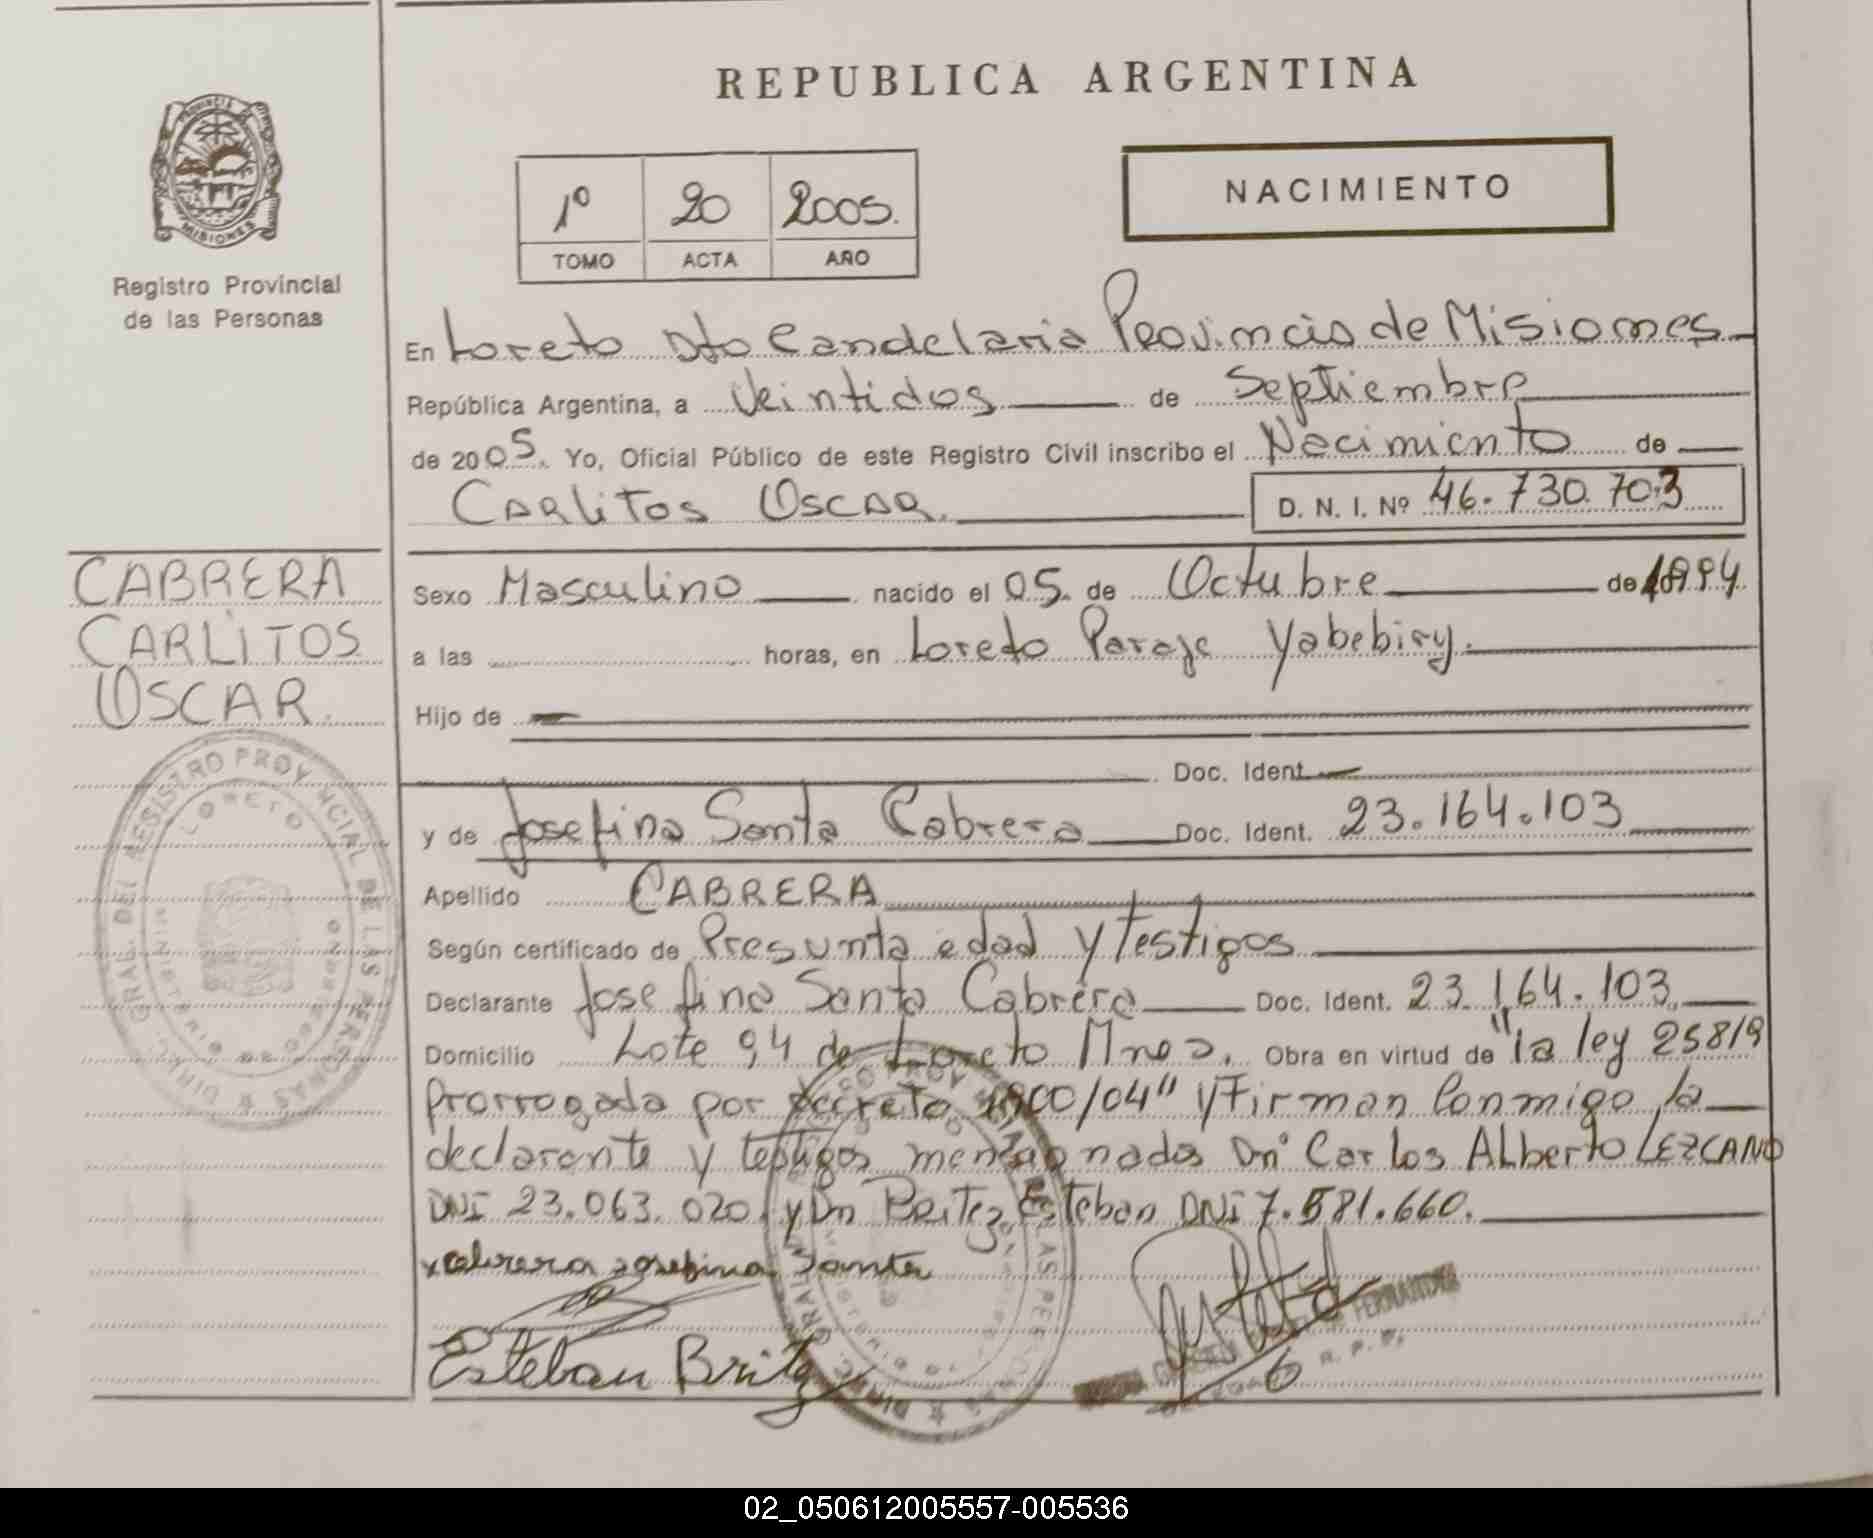 REPUBLICA ARGENTINA
PROVINCIA DE
MISIONES
Registro Provincial
de las Personas
1º 20 2005.
TOMO ACTA AÑO
NACIMIENTO
En Loreto Dto Candelaria Provincia de Misiones
República Argentina, a Veintidos de Septiembre
de 2005. Yo, Oficial Público de este Registro Civil inscribo el Nacimiento de
Carlitos Oscar. D. N. I. Nº 46.730.703
CABRERA
CARLITOS
OSCAR.
Sexo Masculino nacido el 05. de Octubre de 1994
a las horas, en Loreto Paraje Yabebiry.
Hijo de
Doc. Ident.
y de Josefina Santa Cabrera Doc. Ident. 23.164.103
Apellido CABRERA
Según certificado de Presunta edad y Testigos
Declarante Josefina Santa Cabrera Doc. Ident. 23.164.103
Domicilio Lote 94 de Loreto Mnes. Obra en virtud de "la ley 25819
Prorrogada por decreto 1900/04" y Firman Conmigo la
declarante y testigos mencionados Dn Carlos Alberto LEZCANO
DNI 23.063.020. y Dn Beitez Esteban DNI 7.581.660.
x cabrera josefina Santa
Esteban Britez
FERNANDEZ
R. P. P.
DIREC. GRAL. DEL REGISTRO PROVINCIAL DE LAS PERSONAS
LORETO
02_050612005557-005536